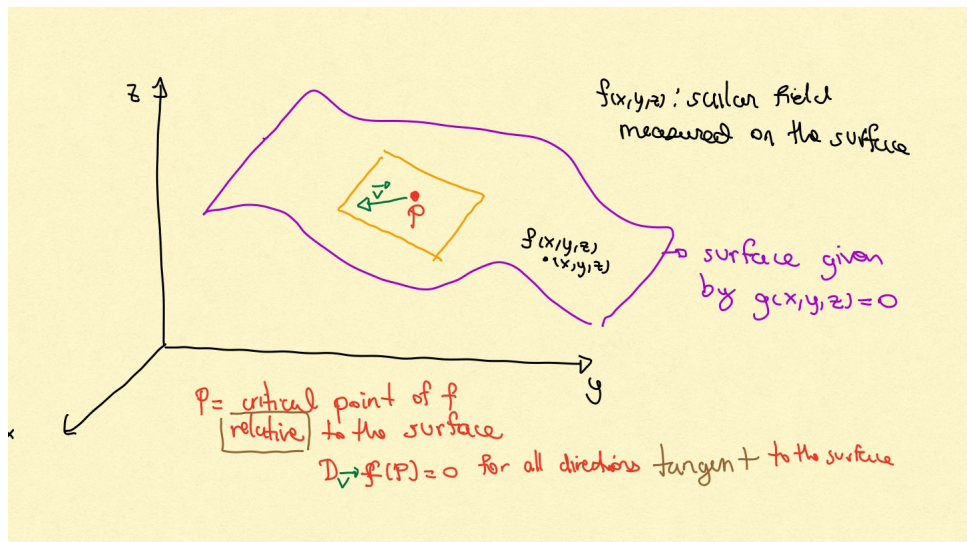 z
f(x,y,z): scalar field
measured on the surface
v⃗
P
f(x,y,z)
(x,y,z)
surface given
by g(x,y,z)=0
y
x
P= critical point of f
relative to the surface
D_v⃗ f(P)=0 for all directions tangent to the surface